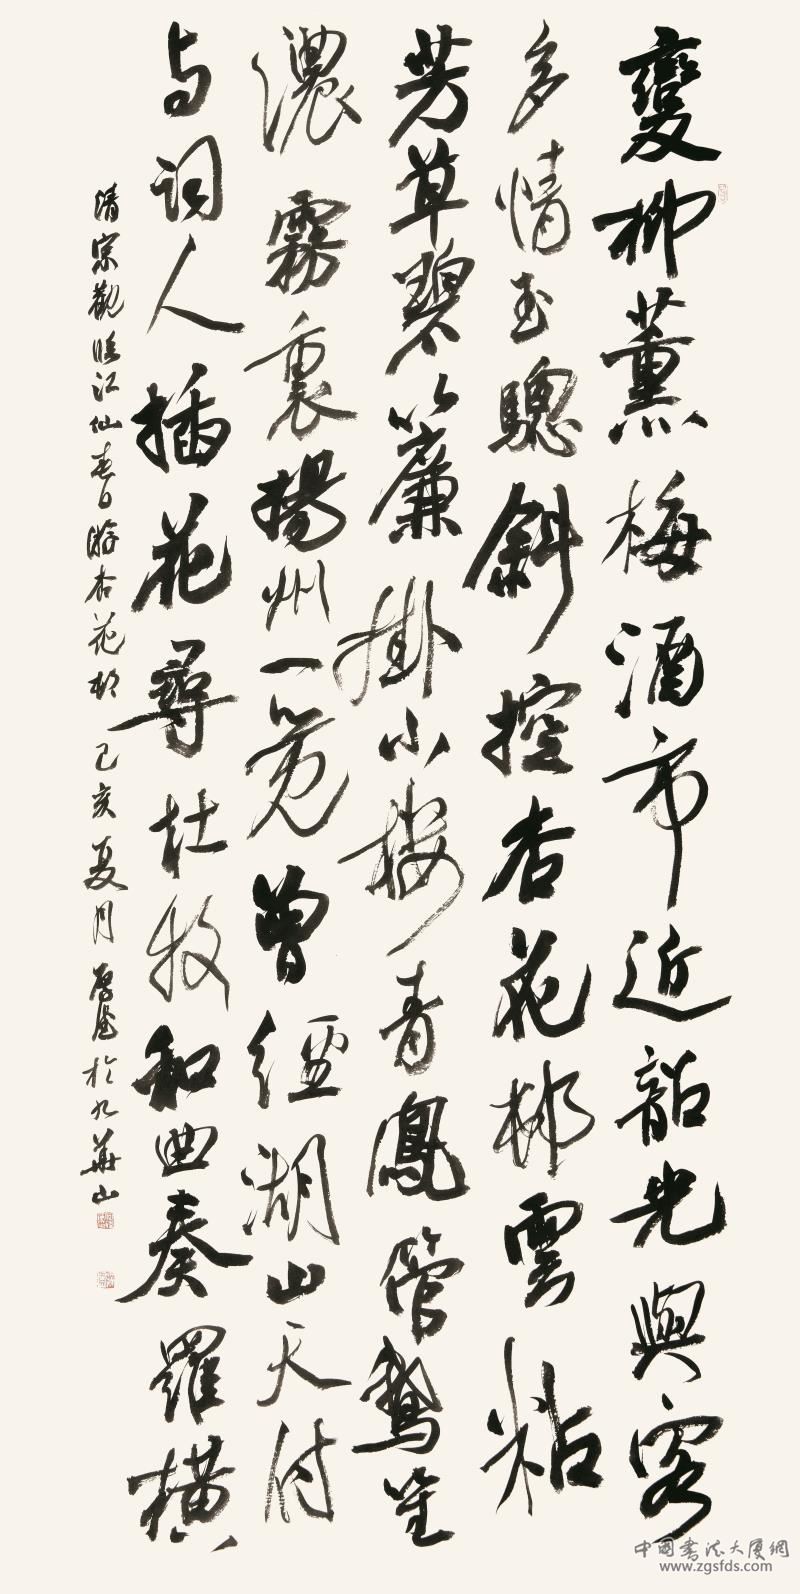 變柳薰梅酒市近韶光與客
多情玉驄斜控杏花邨雲粘
芳草碧簾掛小樓青鳳管鵝笙
濃霧裏揚州一覓曾經湖山天付
与詞人插花尋杜牧和曲奏羅橫
清宗觀臨江仙春日游杏花邨己亥夏月於九華山
中國書法大廈網
www.zgsfds.com